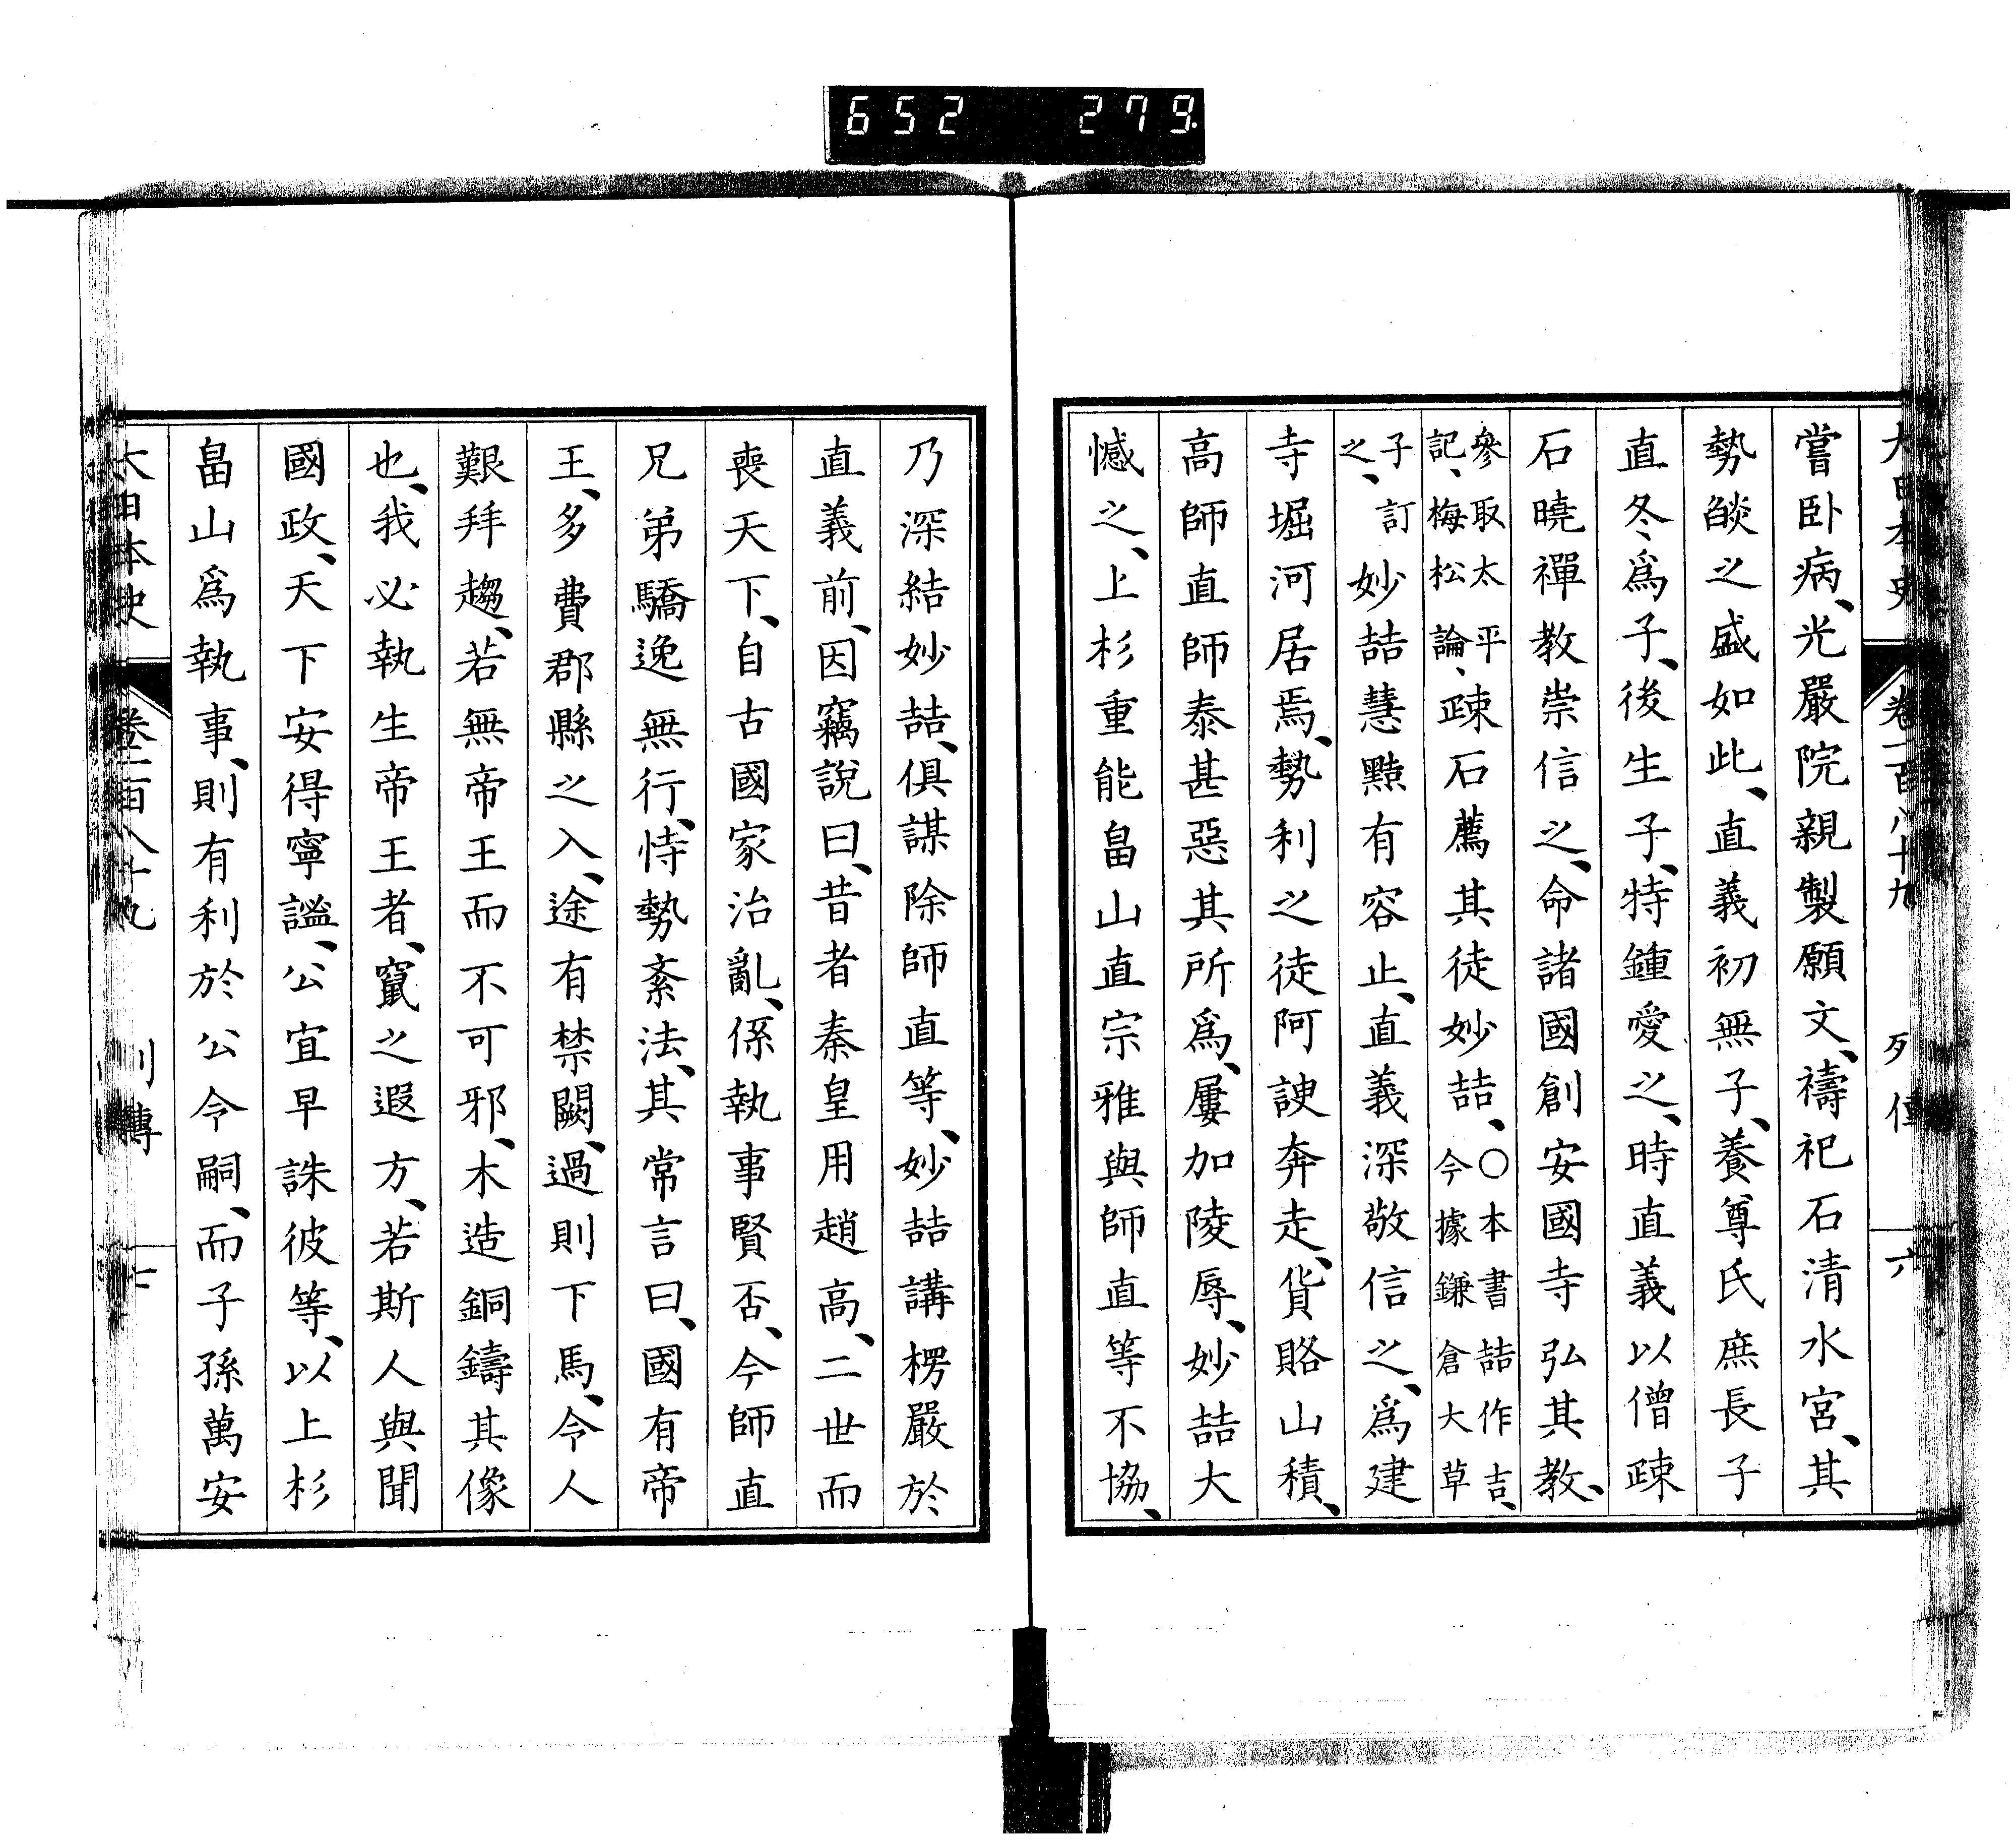 652 279.
大日本史 卷一百八十九 列傳 六
嘗臥病、光嚴院親製願文、禱祀石清水宮、其
勢燄之盛如此、直義初無子、養尊氏庶長子
直冬、爲子、後生子、特鍾愛之、時直義以僧疎
石曉禪教崇信之、命諸國創安國寺弘其教、
參取太平
記、梅松論、
疎石薦其徒妙喆、
○本書喆作吉、
今據鎌倉大草
子訂
之、
妙喆慧黠有容止、直義深敬信之、爲建
寺堀河居焉、勢利之徒阿諛奔走、貨賂山積、
高師直師泰甚惡其所爲、屢加陵辱、妙喆大
憾之、上杉重能畠山直宗雅與師直等不協、
乃深結妙喆、俱謀除師直等、妙喆講楞嚴於
直義前、因竊說曰、昔者秦皇用趙高、二世而
喪天下、自古國家治亂、係執事賢否、今師直
兄弟驕逸無行、恃勢紊法、其常言曰、國有帝
王、多費郡縣之入、途有禁闕、過則下馬、今人
艱拜趨、若無帝王而不可邪、木造銅鑄其像
也、我必執生帝王者、竄之遐方、若斯人與聞
國政、天下安得寧謐、公宜早誅彼等、以上杉
畠山爲執事、則有利於公令嗣、而子孫萬安
大日本史 卷一百八十九 列傳 七